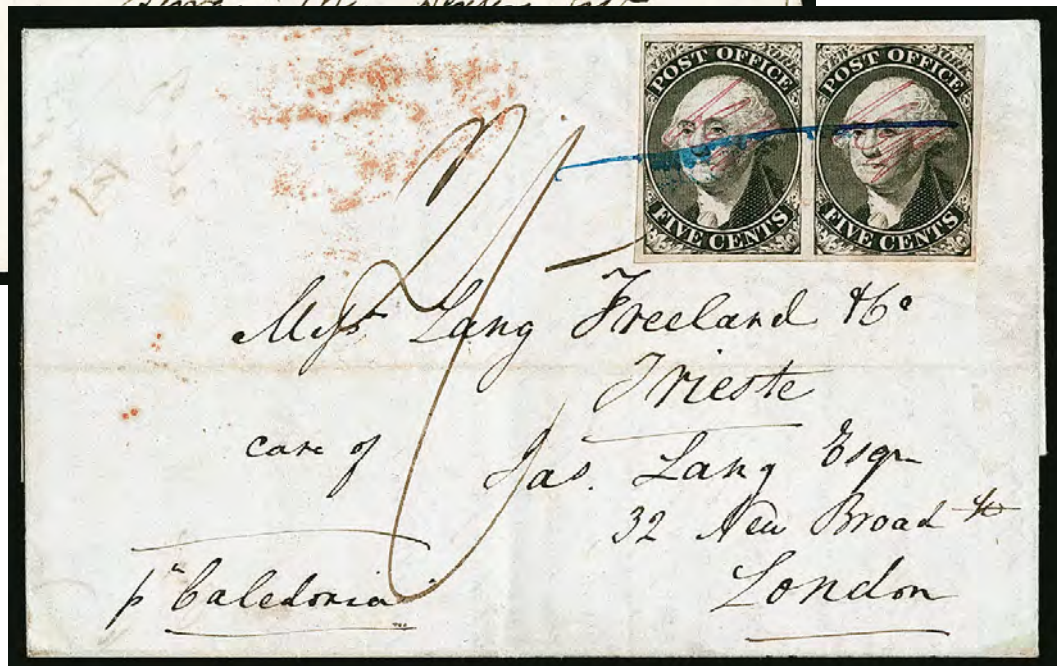 POST OFFICE POST OFFICE
FIVE CENTS FIVE CENTS
2/-
Messrs Lang Freeland & Co
Trieste
care of
Jas. Lang Esqr
32 New Broad St
London
pr Caledonia